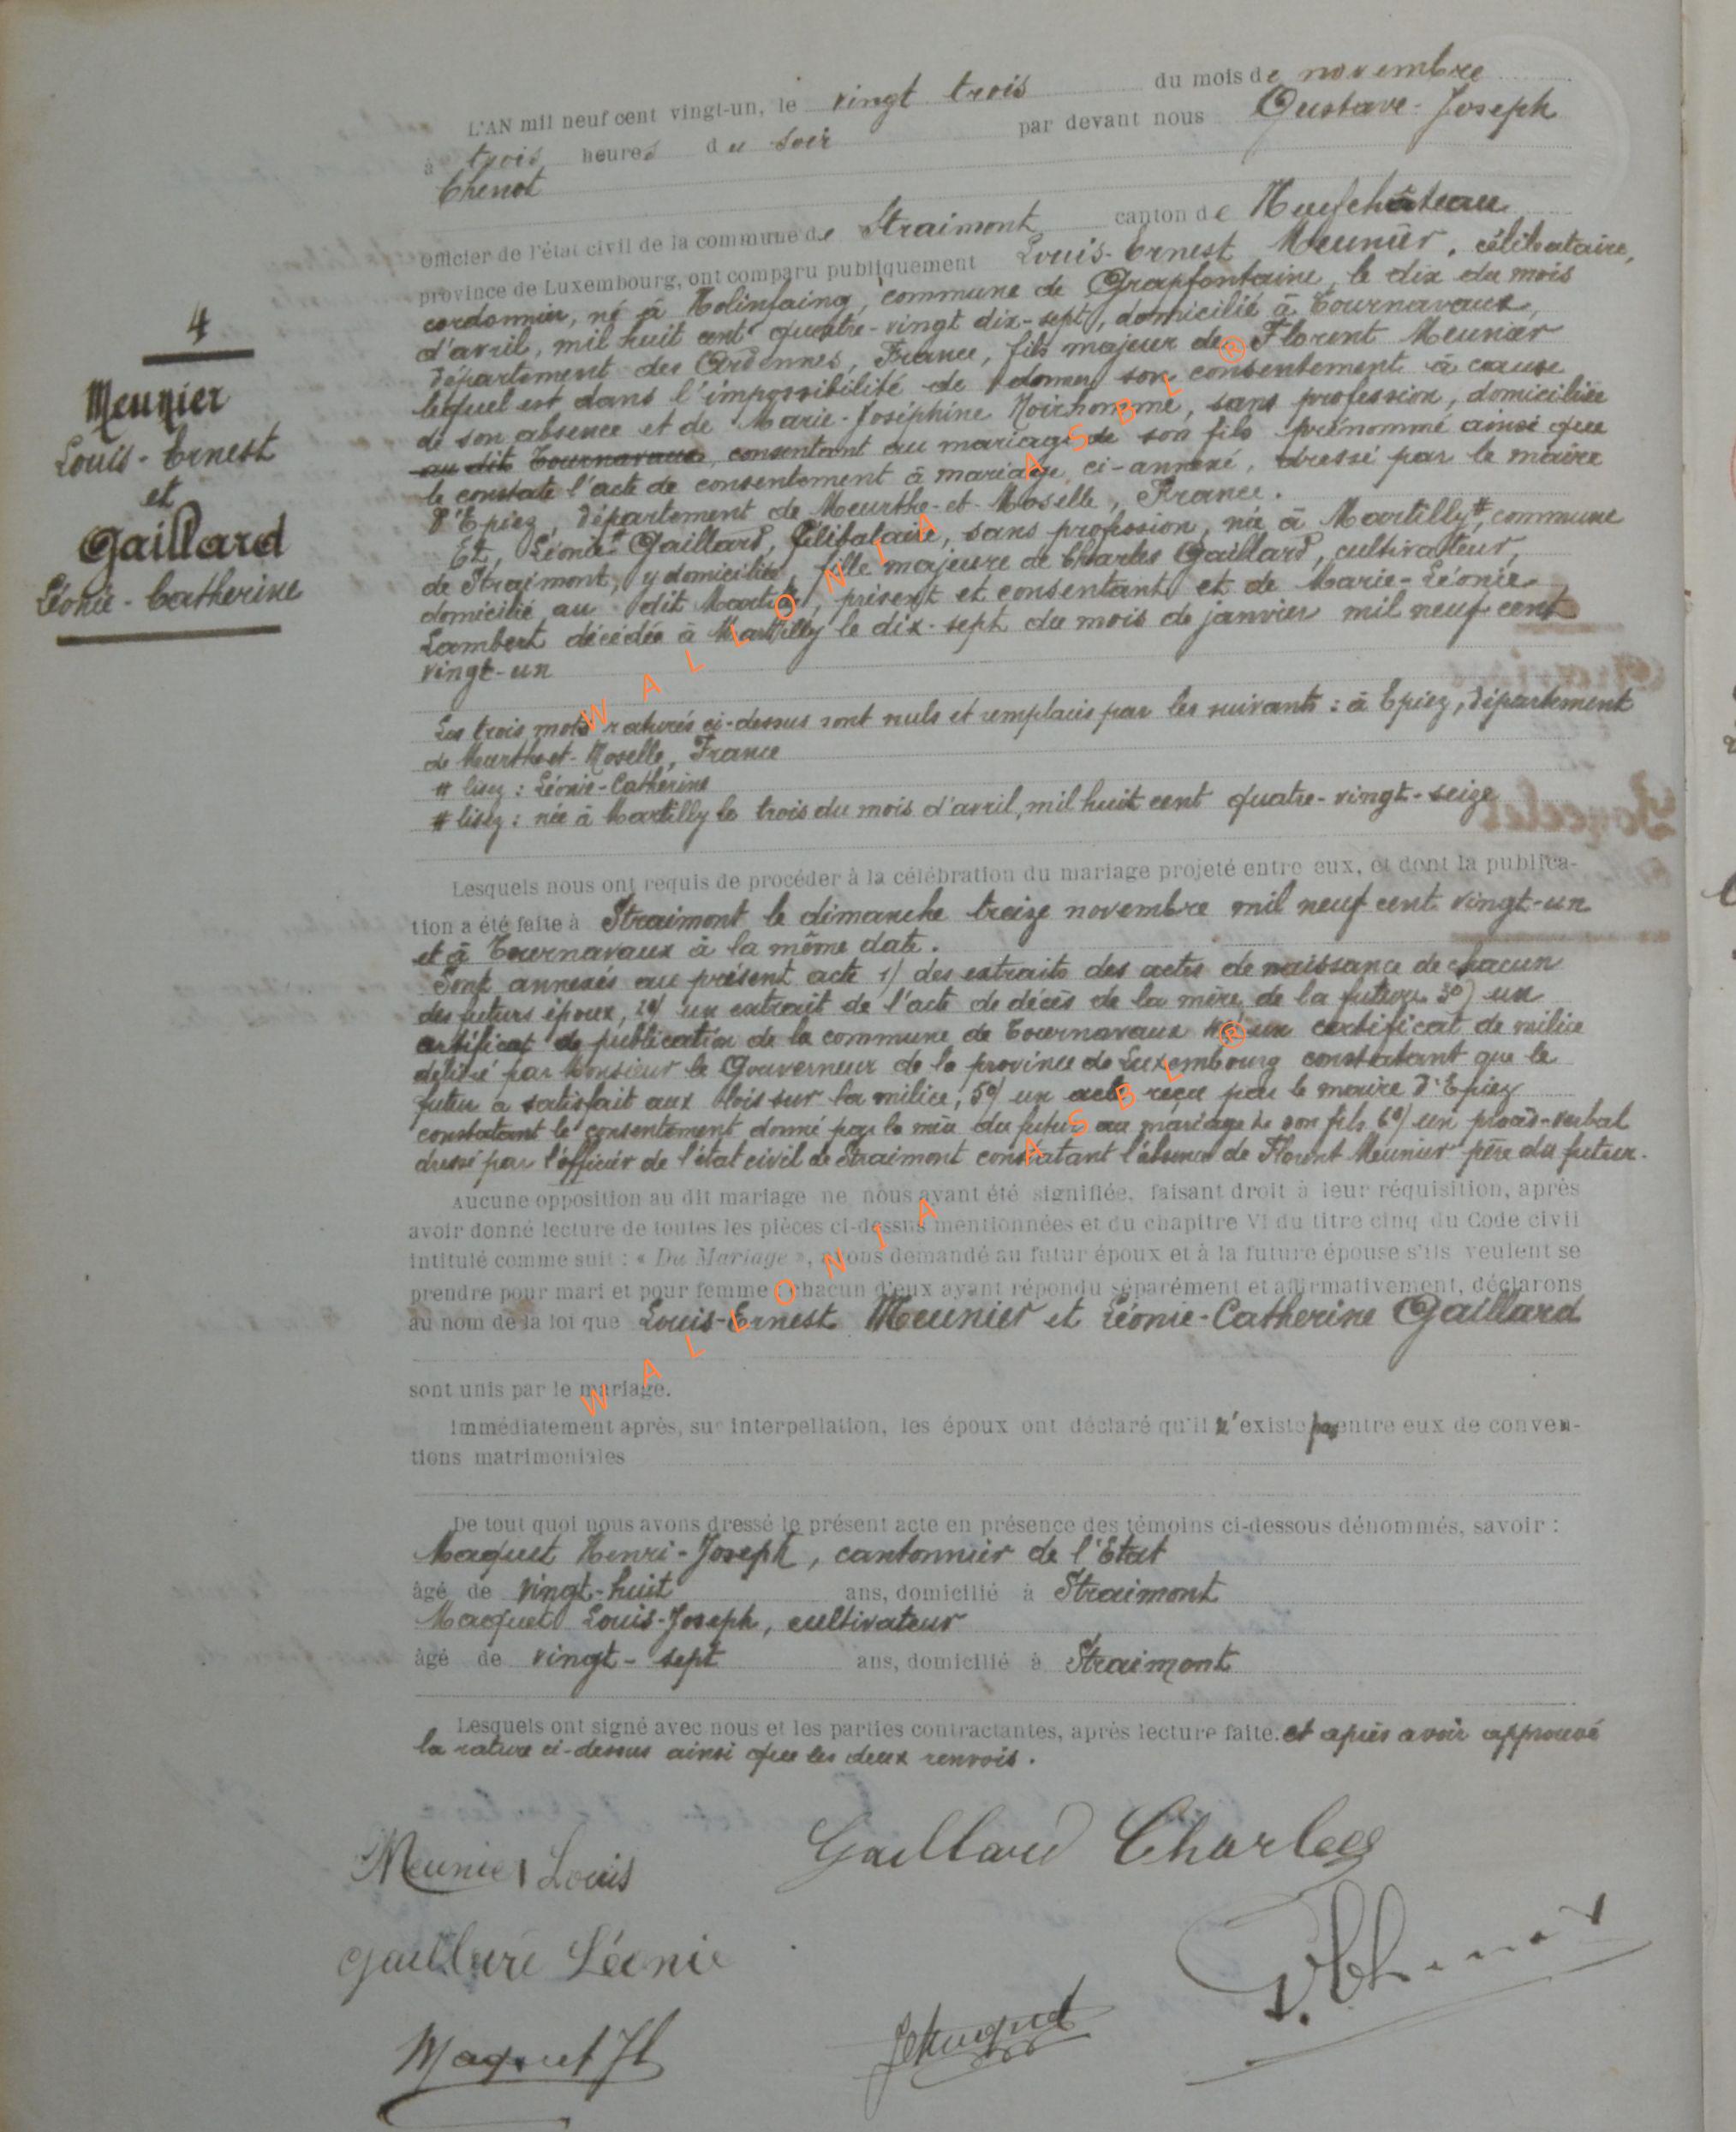 4
Meunier
Louis-Ernest
et
Gaillard
Léonie-Catherine
L'AN mil neuf cent vingt-un, le vingt trois du mois de novembre
à trois heures du soir par devant nous Gustave-Joseph
Chenot
officier de l'état civil de la commune de Straimont canton de Neufchâteau
province de Luxembourg, ont comparu publiquement Louis-Ernest Meunier, célibataire,
cordonnier, né à Molinfaing, commune de Grapfontaine, le dix du mois
d'avril, mil huit cent quatre-vingt dix-sept, domicilié à Tournavaux,
département des Ardennes, France, fils majeur de Florent Meunier
lequel est dans l'impossibilité de donner son consentement à cause
de son absence et de Marie-Joséphine Noirhomme, sans profession, domiciliée
au dit Tournavaux, consentant au mariage de son fils prénommé ainsi que
le constate l'acte de consentement à mariage, ci-annexé, dressé par le maire
d'Epiez, département de Meurthe-et-Moselle, France.
Et, Léonie # Gaillard, célibataire, sans profession, née à Martilly #, commune
de Straimont, y domiciliée, fille majeure de Charles Gaillard, cultivateur,
domicilié au dit Martilly, présent et consentant et de Marie-Léonie
Lambert décédée à Martilly le dix-sept du mois de janvier mil neuf cent
vingt-un
Les trois mots raturés ci-dessus sont nuls et remplacés par les suivants : à Epiez, département
de Meurthe-et-Moselle, France
# lisez : Léonie-Catherine
# lisez : née à Martilly le trois du mois d'avril, mil huit cent quatre-vingt-seize
Lesquels nous ont requis de procéder à la célébration du mariage projeté entre eux, et dont la publica-
tion a été faite à Straimont le dimanche treize novembre mil neuf cent vingt-un
et à Tournavaux à la même date.
Sont annexés au présent acte 1) des extraits des actes de naissance de chacun
des futurs époux, 2º) un extrait de l'acte de décès de la mère de la future 3º) un
certificat de publication de la commune de Tournavaux un certificat de milice
délivré par Monsieur le Gouverneur de la province de Luxembourg constatant que le
futur a satisfait aux lois sur la milice, 5º) un acte reçu par le maire d'Epiez
constatant le consentement donné par la mère du futur au mariage de son fils 6º) un procès-verbal
dressé par l'officier de l'état civil de Straimont constatant l'absence de Florent Meunier père du futur.
Aucune opposition au dit mariage ne nous ayant été signifiée, faisant droit à leur réquisition, après
avoir donné lecture de toutes les pièces ci-dessus mentionnées et du chapitre VI du titre cinq du Code civil
intitulé comme suit : « Du Mariage », avons demandé au futur époux et à la future épouse s'ils veulent se
prendre pour mari et pour femme ; chacun d'eux ayant répondu séparément et affirmativement, déclarons
au nom de la loi que Louis-Ernest Meunier et Léonie-Catherine Gaillard
sont unis par le mariage.
Immédiatement après, sur interpellation, les époux ont déclaré qu'il n'existe pas entre eux de conven-
tions matrimoniales
De tout quoi nous avons dressé le présent acte en présence des témoins ci-dessous dénommés, savoir :
Maquet Henri-Joseph, cantonnier de l'Etat
âgé de vingt-huit ans, domicilié à Straimont
Maquet Louis-Joseph, cultivateur
âgé de vingt-sept ans, domicilié à Straimont
Lesquels ont signé avec nous et les parties contractantes, après lecture faite. et après avoir approuvé
la rature ci-dessus ainsi que les deux renvois.
Meunier Louis
Gaillard Charles
Gaillard Léonie
Maquet H
WALLONIA ASBL ®
WALLONIA ASBL ®